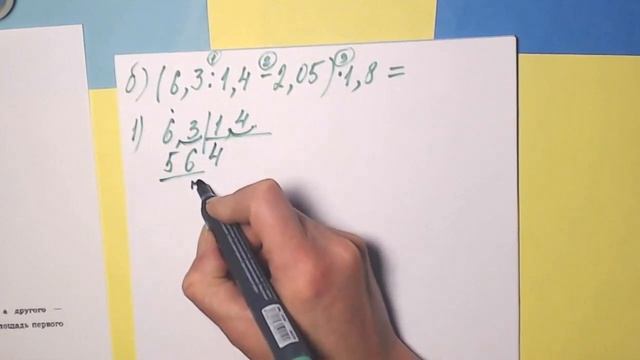 б) (6,3 : 1,4 - 2,05) · 1,8 =
1 2 3
1) 6,3 | 1,4
56 4
а другого —
лощадь первого